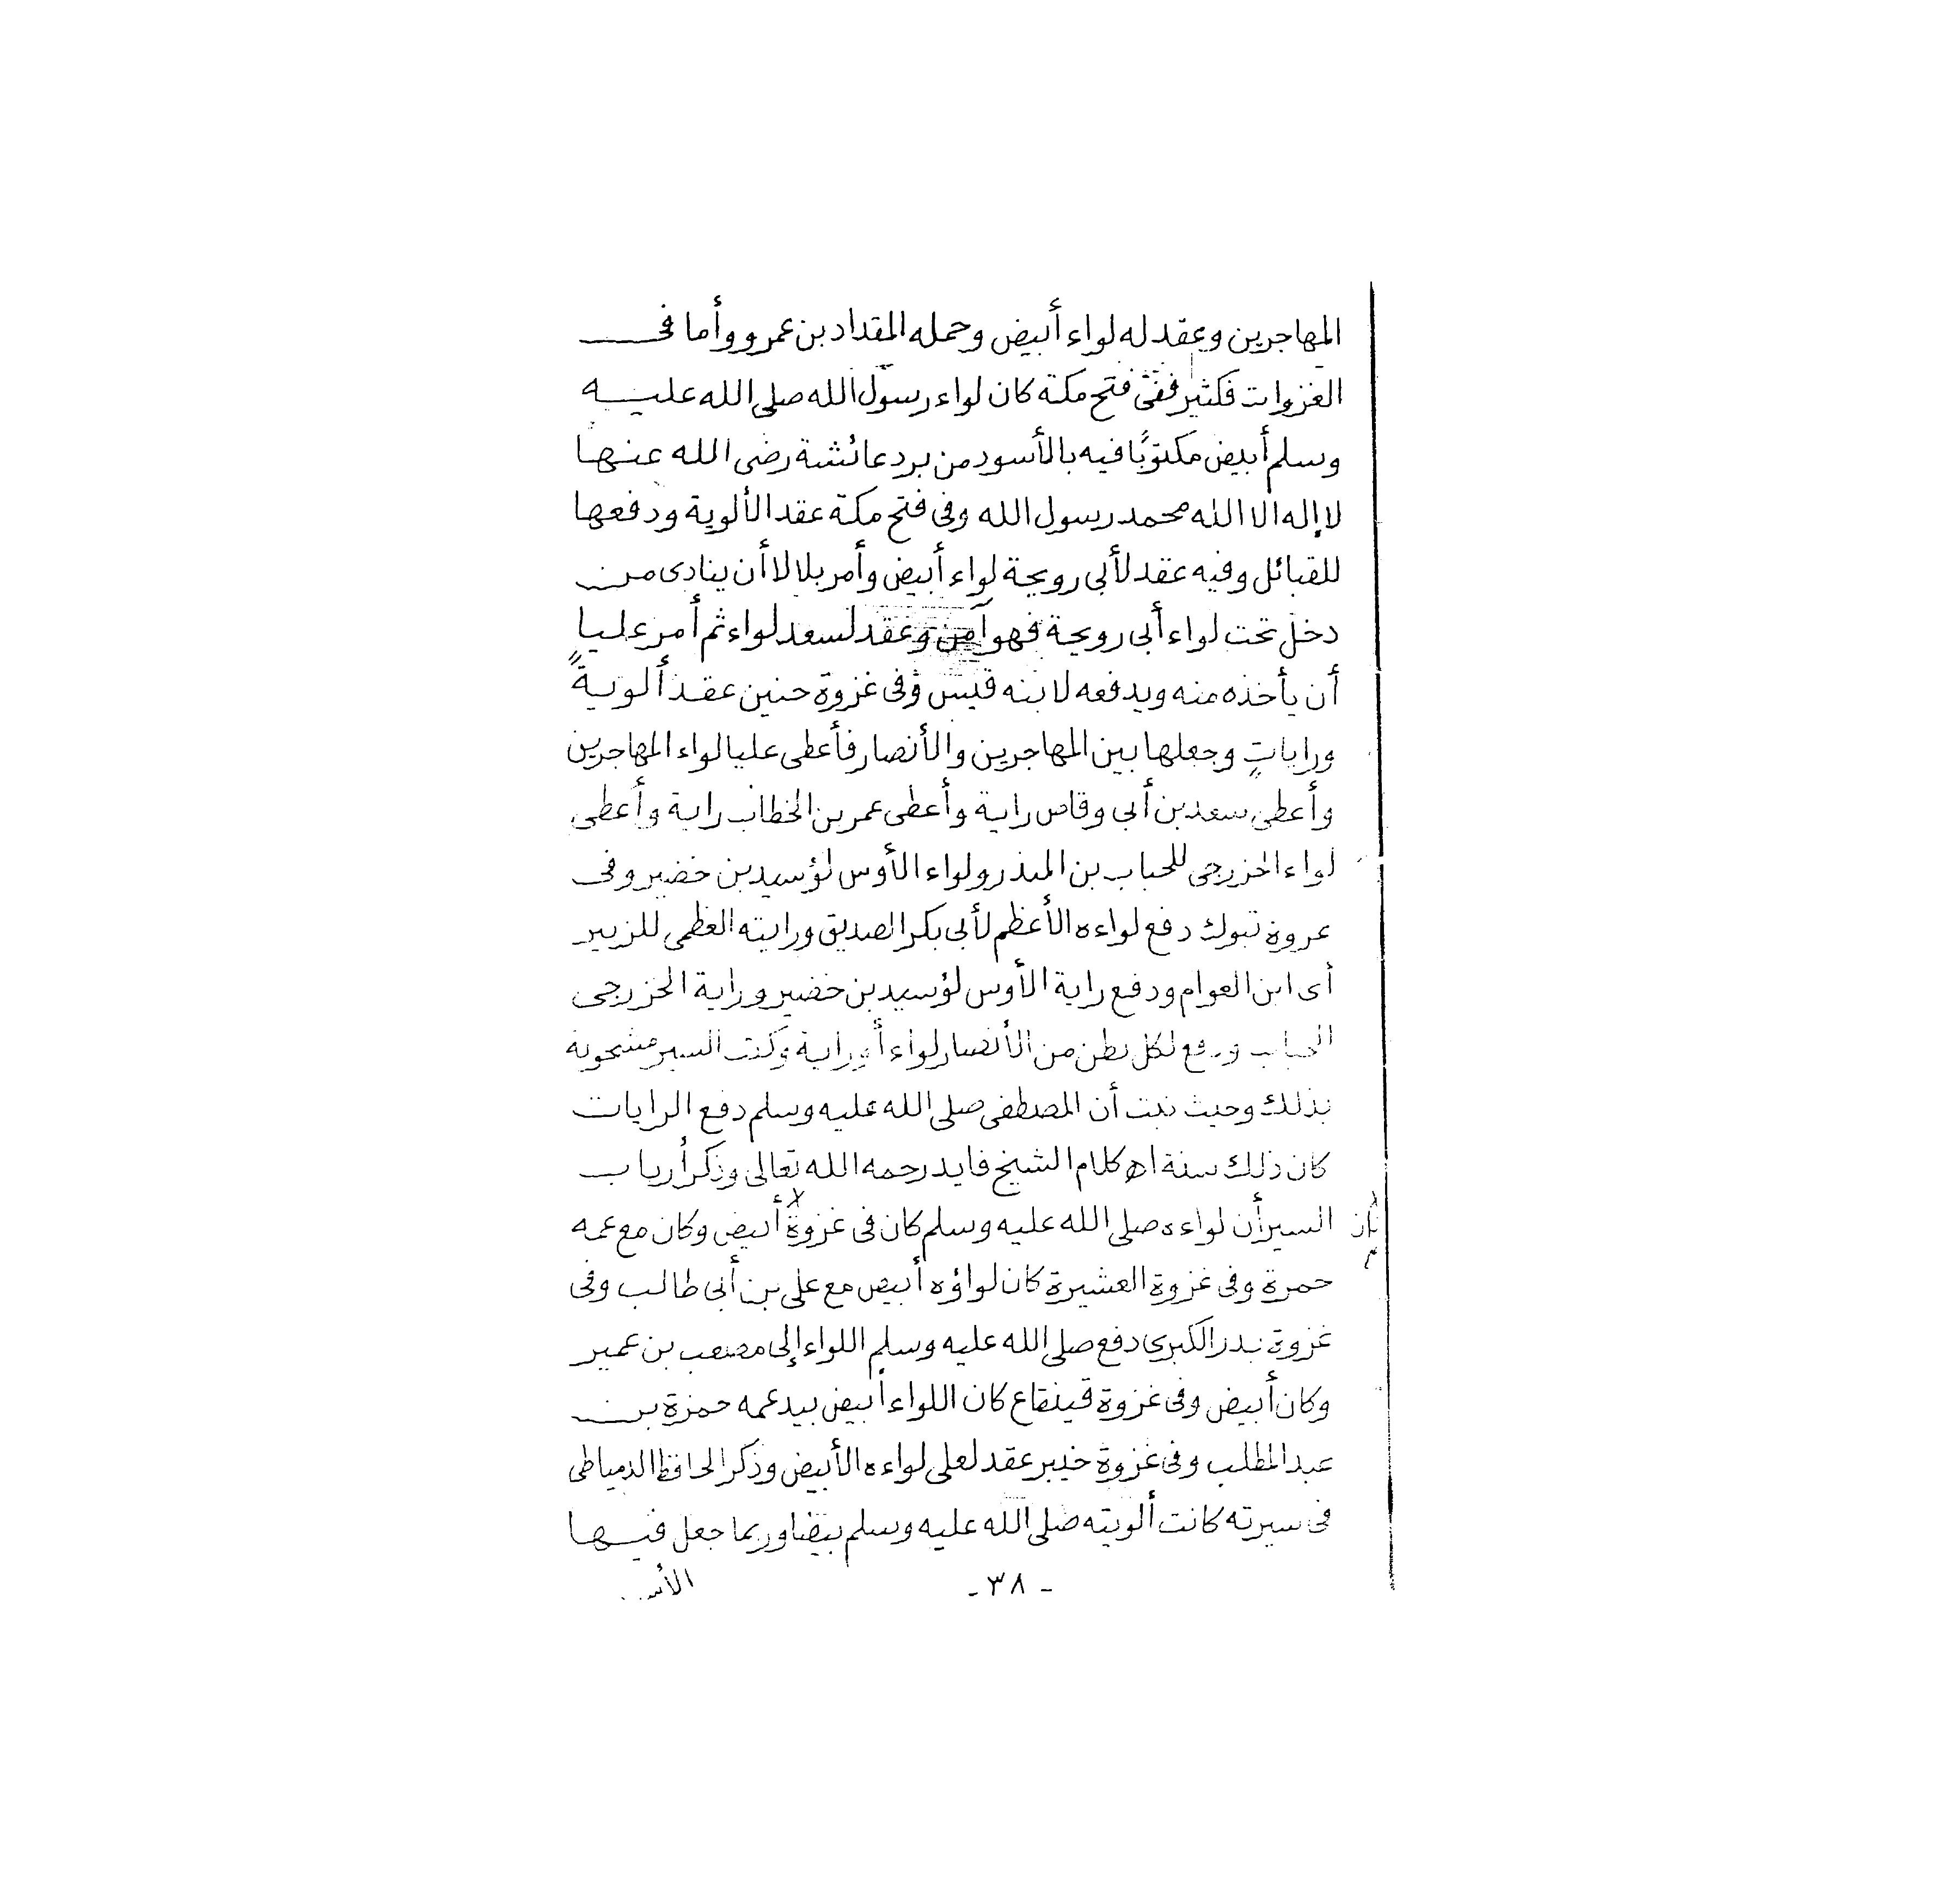 المهاجرين وعقد له لواء أبيض وحمله المقداد بن عمرو وأما فى
الغزوات فكثير ففى فتح مكة كان لواء رسول الله صلى الله عليه
وسلم أبيض مكتوبًا فيه بالأسود من برد عائشة رضى الله عنها
لا إله الا الله محمد رسول الله وفى فتح مكة عقد الألوية ودفعها
للقبائل وفيه عقد لأبى رويحة لواء أبيض وأمر بلالا أن ينادى من
دخل تحت لواء أبى رويحة فهو آمن وعقد لسعد لواء ثم أمر عليا
أن يأخذه منه ويدفعه لابنه قيس وفى غزوة حنين عقد ألويةً
وراياتٍ وجعلها بين المهاجرين والأنصار فأعطى عليا لواء المهاجرين
وأعطى سعد بن أبى وقاص راية وأعطى عمر بن الخطاب راية وأعطى
لواء الخزرجى للحباب بن المنذر ولواء الأوس لؤسيد بن خضير وفى
عروة تبوك دفع لواءه الأعظم لأبى بكر الصديق ورايته العظمى للزبير
أى ابن العوام ودفع راية الأوس لؤسيد بن خضير وراية الخزرجى
الحباب ودفع لكل بطن من الأنصار لواء أو راية وكتب السير مشحونة
بذلك وحيث ثبت أن المصطفى صلى الله عليه وسلم دفع الرايات
كان ذلك سنة اه كلام الشيخ فايد رحمه الله تعالى وذكر أرباب
السير أن لواءه صلى الله عليه وسلم كان فى غزوة أبيض وكان مع عمه
حمزة وفى غزوة العشيرة كان لواؤه أبيض مع على بن أبى طالب وفى
غزوة بدر الكبرى دفع صلى الله عليه وسلم اللواء إلى مصعب بن عمير
وكان أبيض وفى غزوة قينقاع كان اللواء أبيض بيد عمه حمزة بن
عبد المطلب وفى غزوة خيبر عقد لعلى لواءه الأبيض وذكر الحافظ الدمياطى
فى سيرته كانت ألويته صلى الله عليه وسلم بيضا وربما جعل فيها
- ٣٨ -